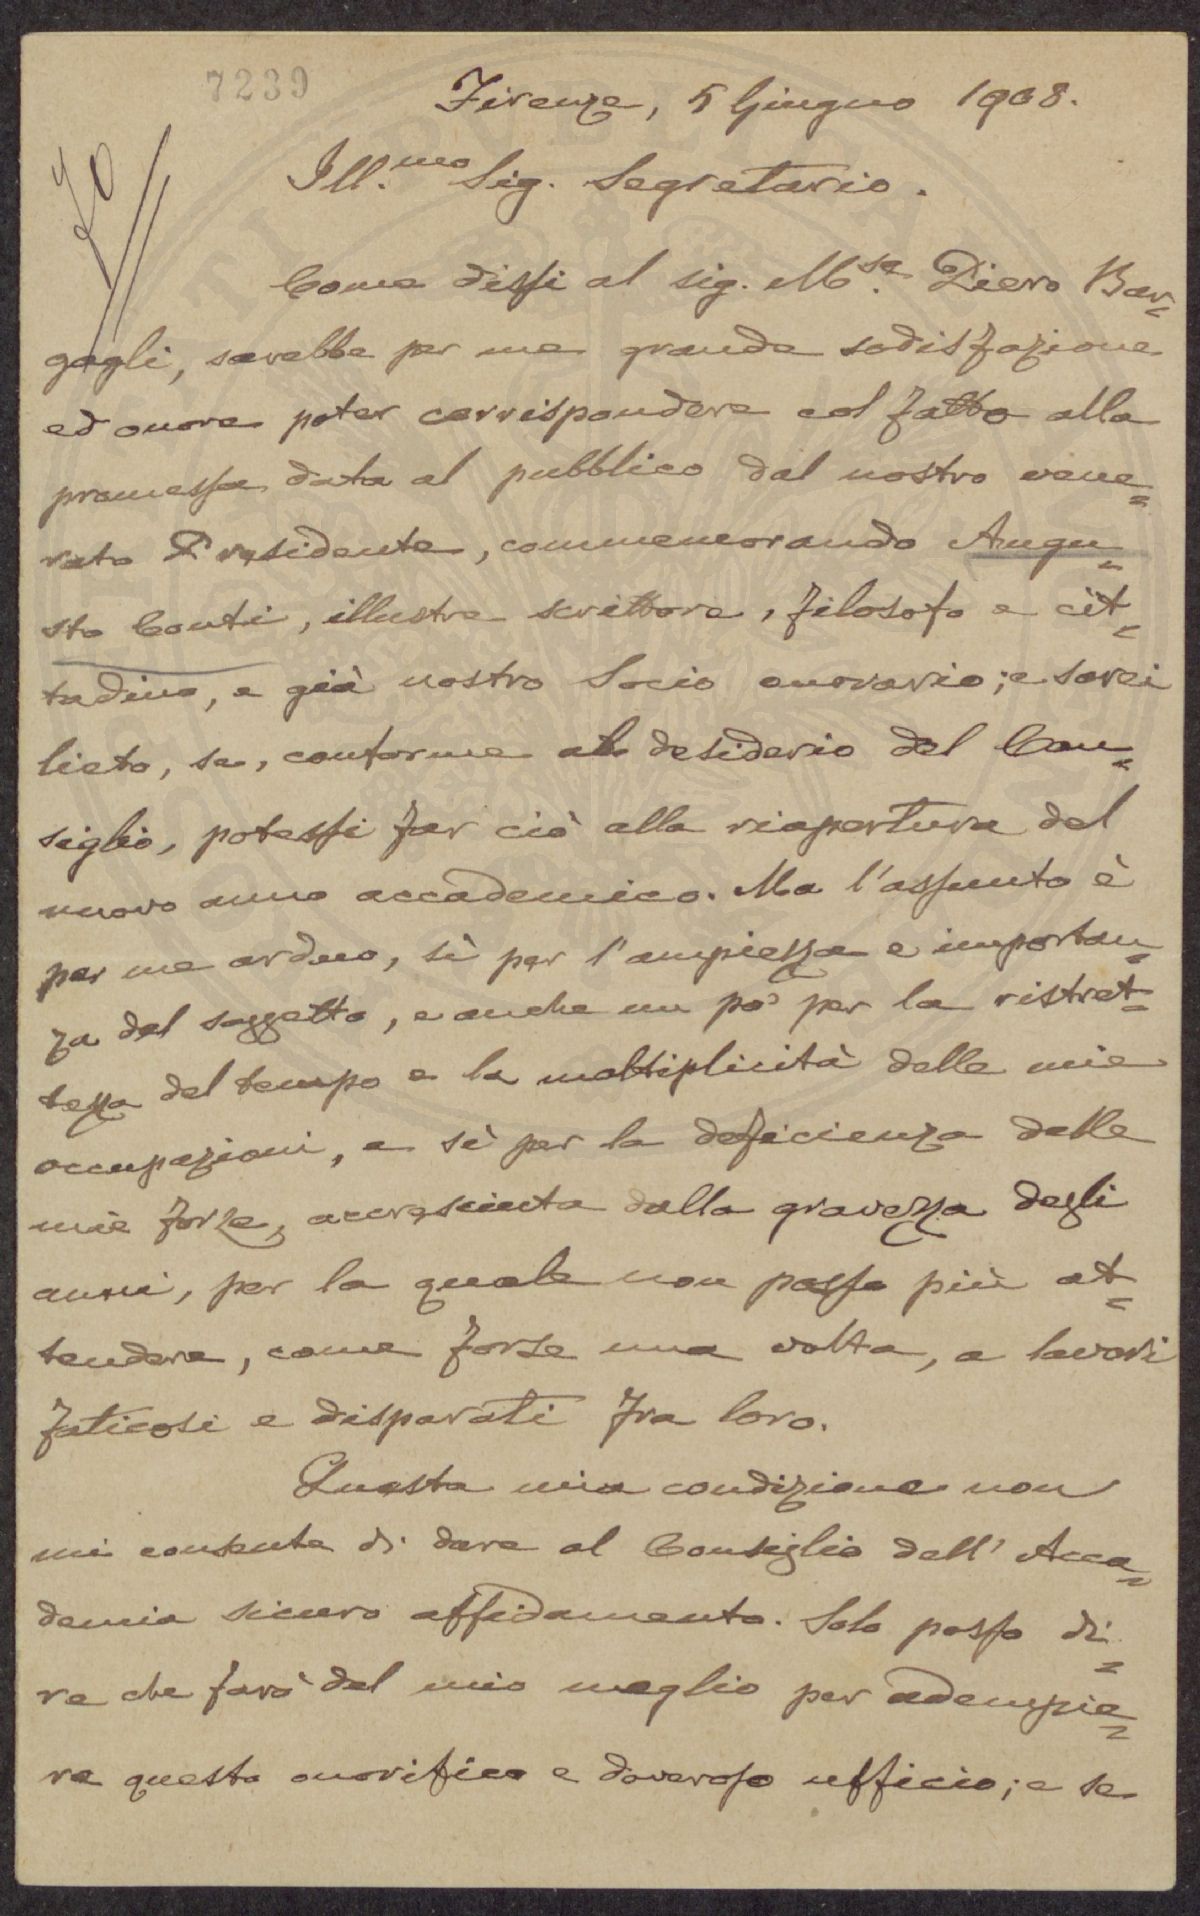 7239
Firenze, 5 Giugno 1908.
Ill.mo Sig. Segretario.
Come dissi al sig. M.se Piero Bar=
gagli, sarebbe per me grande sodisfazione
ed onore poter corrispondere col fatto alla
promessa data al pubblico dal nostro vene=
rato Presidente, commemorando Augu=
sto Conti, illustre scrittore, filosofo e cit=
tadino, e già nostro Socio onorario; e sarei
lieto, se, conforme al desiderio del Con=
siglio, potessi far ciò alla riapertura del
nuovo anno accademico. Ma l'assunto è
per me arduo, sì per l'ampiezza e importan=
za del soggetto, e anche un po' per la ristret=
tezza del tempo e la moltiplicità delle mie
occupazioni, e sì per la deficienza delle
mie forze, accresciuta dalla gravezza degli
anni, per la quale non posso più at=
tendere, come forse una volta, a lavori
faticosi e disparati fra loro.
Questa mia condizione non
mi consente di dare al Consiglio dell' Acca=
demia sicuro affidamento. Solo posso di=
re che farò del mio meglio per adempie=
re questo onorifico e doveroso ufficio; e se